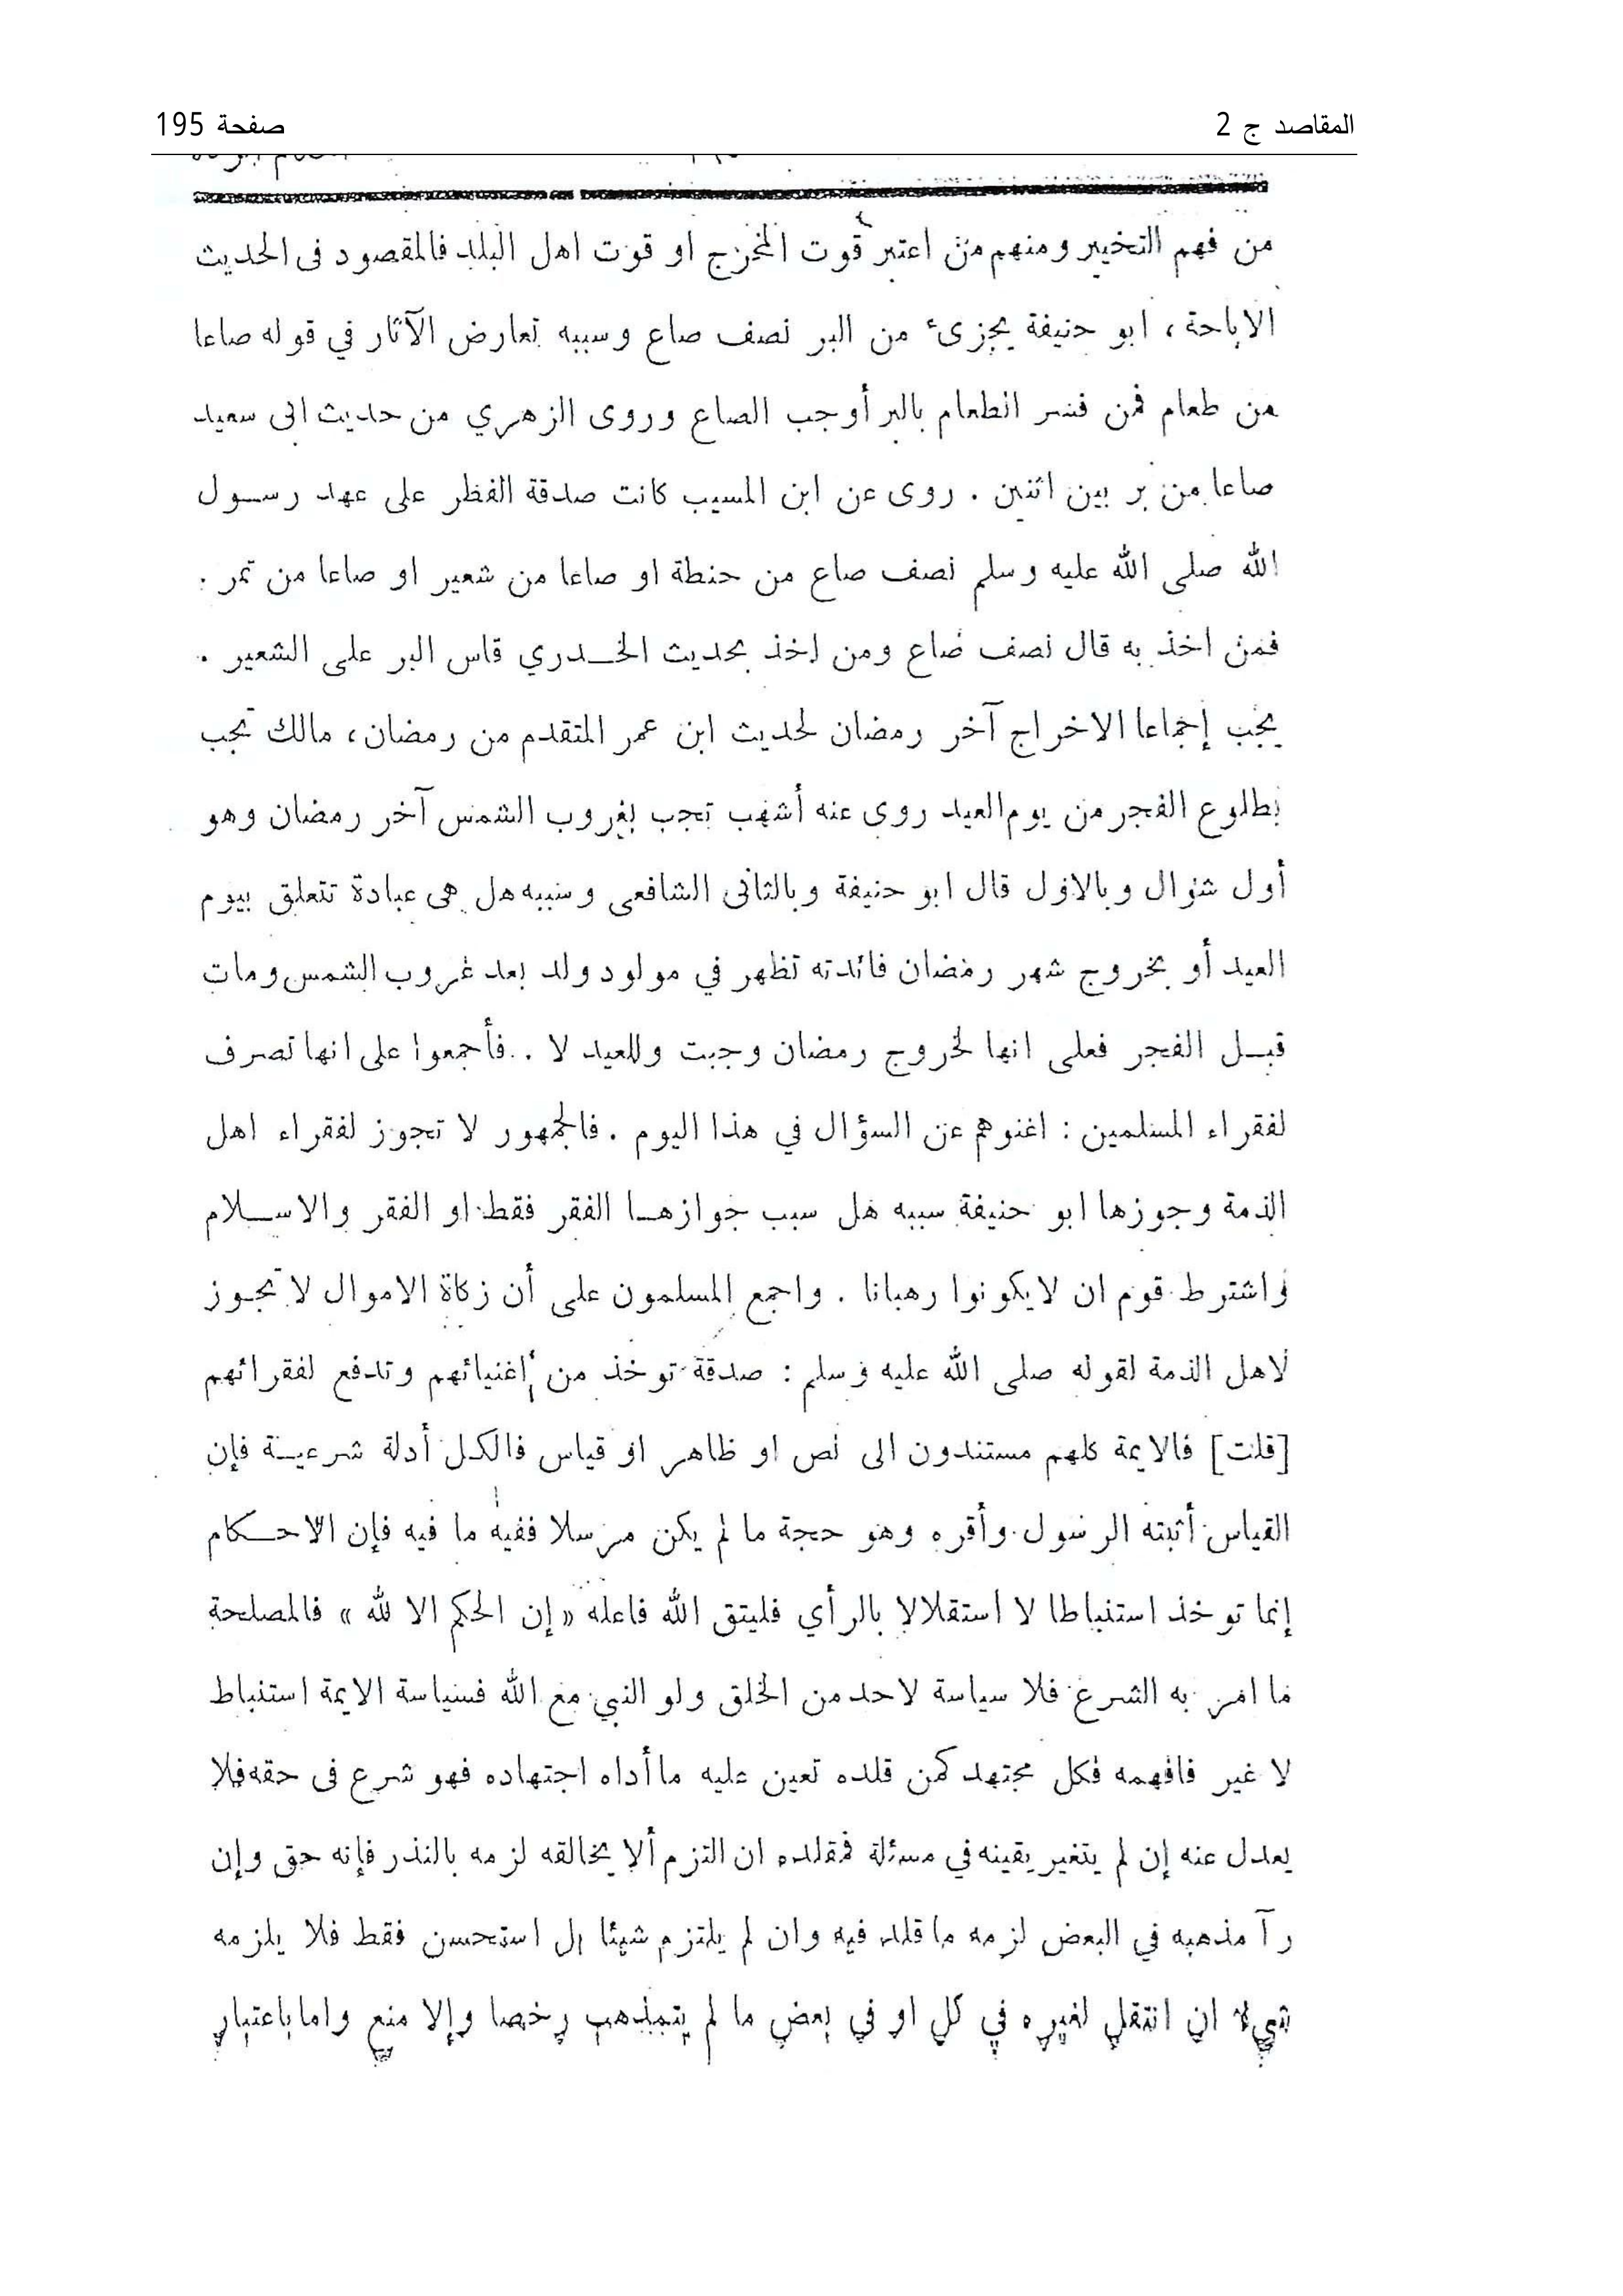 المقاصد ج 2
صفحة 195
من فهم التخيير ومنهم من اعتبر قوت المخرج او قوت اهل البلد فالمقصود فى الحديث
الاباحة ، ابو حنيفة يجزىء من البر نصف صاع وسببه تعارض الآثار في قوله صاعا
من طعام فمن فسر الطعام بالبر أوجب الصاع وروى الزهري من حديث ابى سعيد
صاعا من بر بين اثنين . روى عن ابن المسيب كانت صدقة الفطر على عهد رسول
الله صلى الله عليه وسلم نصف صاع من حنطة او صاعا من شعير او صاعا من تمر .
فمن اخذ به قال نصف صاع ومن اخذ بحديث الخدري قاس البر على الشعير .
يجب إجماعا الاخراج آخر رمضان لحديث ابن عمر المتقدم من رمضان ، مالك تجب
بطلوع الفجر من يوم العيد روى عنه أشهب تجب بغروب الشمس آخر رمضان وهو
أول شوال وبالاول قال ابو حنيفة وبالثانى الشافعى وسببه هل هى عبادة تتعلق بيوم
العيد أو بخروج شهر رمضان فائدته تظهر في مولود ولد بعد غروب الشمس ومات
قبل الفجر فعلى انها لخروج رمضان وجبت وللعيد لا . فأجمعوا على انها تصرف
لفقراء المسلمين : اغنوهم عن السؤال في هذا اليوم . فالجمهور لا تجوز لفقراء اهل
الذمة وجوزها ابو حنيفة سببه هل سبب جوازها الفقر فقط او الفقر والاسلام
واشترط قوم ان لا يكونوا رهبانا . واجمع المسلمون على أن زكاة الاموال لا تجوز
لاهل الذمة لقوله صلى الله عليه وسلم : صدقة توخذ من أغنيائهم وتدفع لفقرائهم
[قلت] فالايمة كلهم مستندون الى نص او ظاهر او قياس فالكل أدلة شرعية فإن
القياس أثبته الرسول وأقره وهو حجة ما لم يكن مرسلا ففيه ما فيه فإن الاحكام
إنما توخذ استنباطا لا استقلالا بالرأي فليتق الله فاعله «إن الحكم الا لله» فالمصلحة
ما امر به الشرع فلا سياسة لاحد من الخلق ولو النبي مع الله فسياسة الايمة استنباط
لا غير فافهمه فكل مجتهد كمن قلده تعين عليه ما أداه اجتهاده فهو شرع فى حقه فلا
يعدل عنه إن لم يتغير يقينه في مسئلة فمقلده ان التزم ألا يخالفه لزمه بالنذر فإنه حق وإن
رآ مذهبه في البعض لزمه ما قلد فيه وان لم يلتزم شيئا بل استحسن فقط فلا يلزمه
شيء ان انتقل لغيره في كل او في بعض ما لم يتمذهب رخصا وإلا منع واما باعتبار